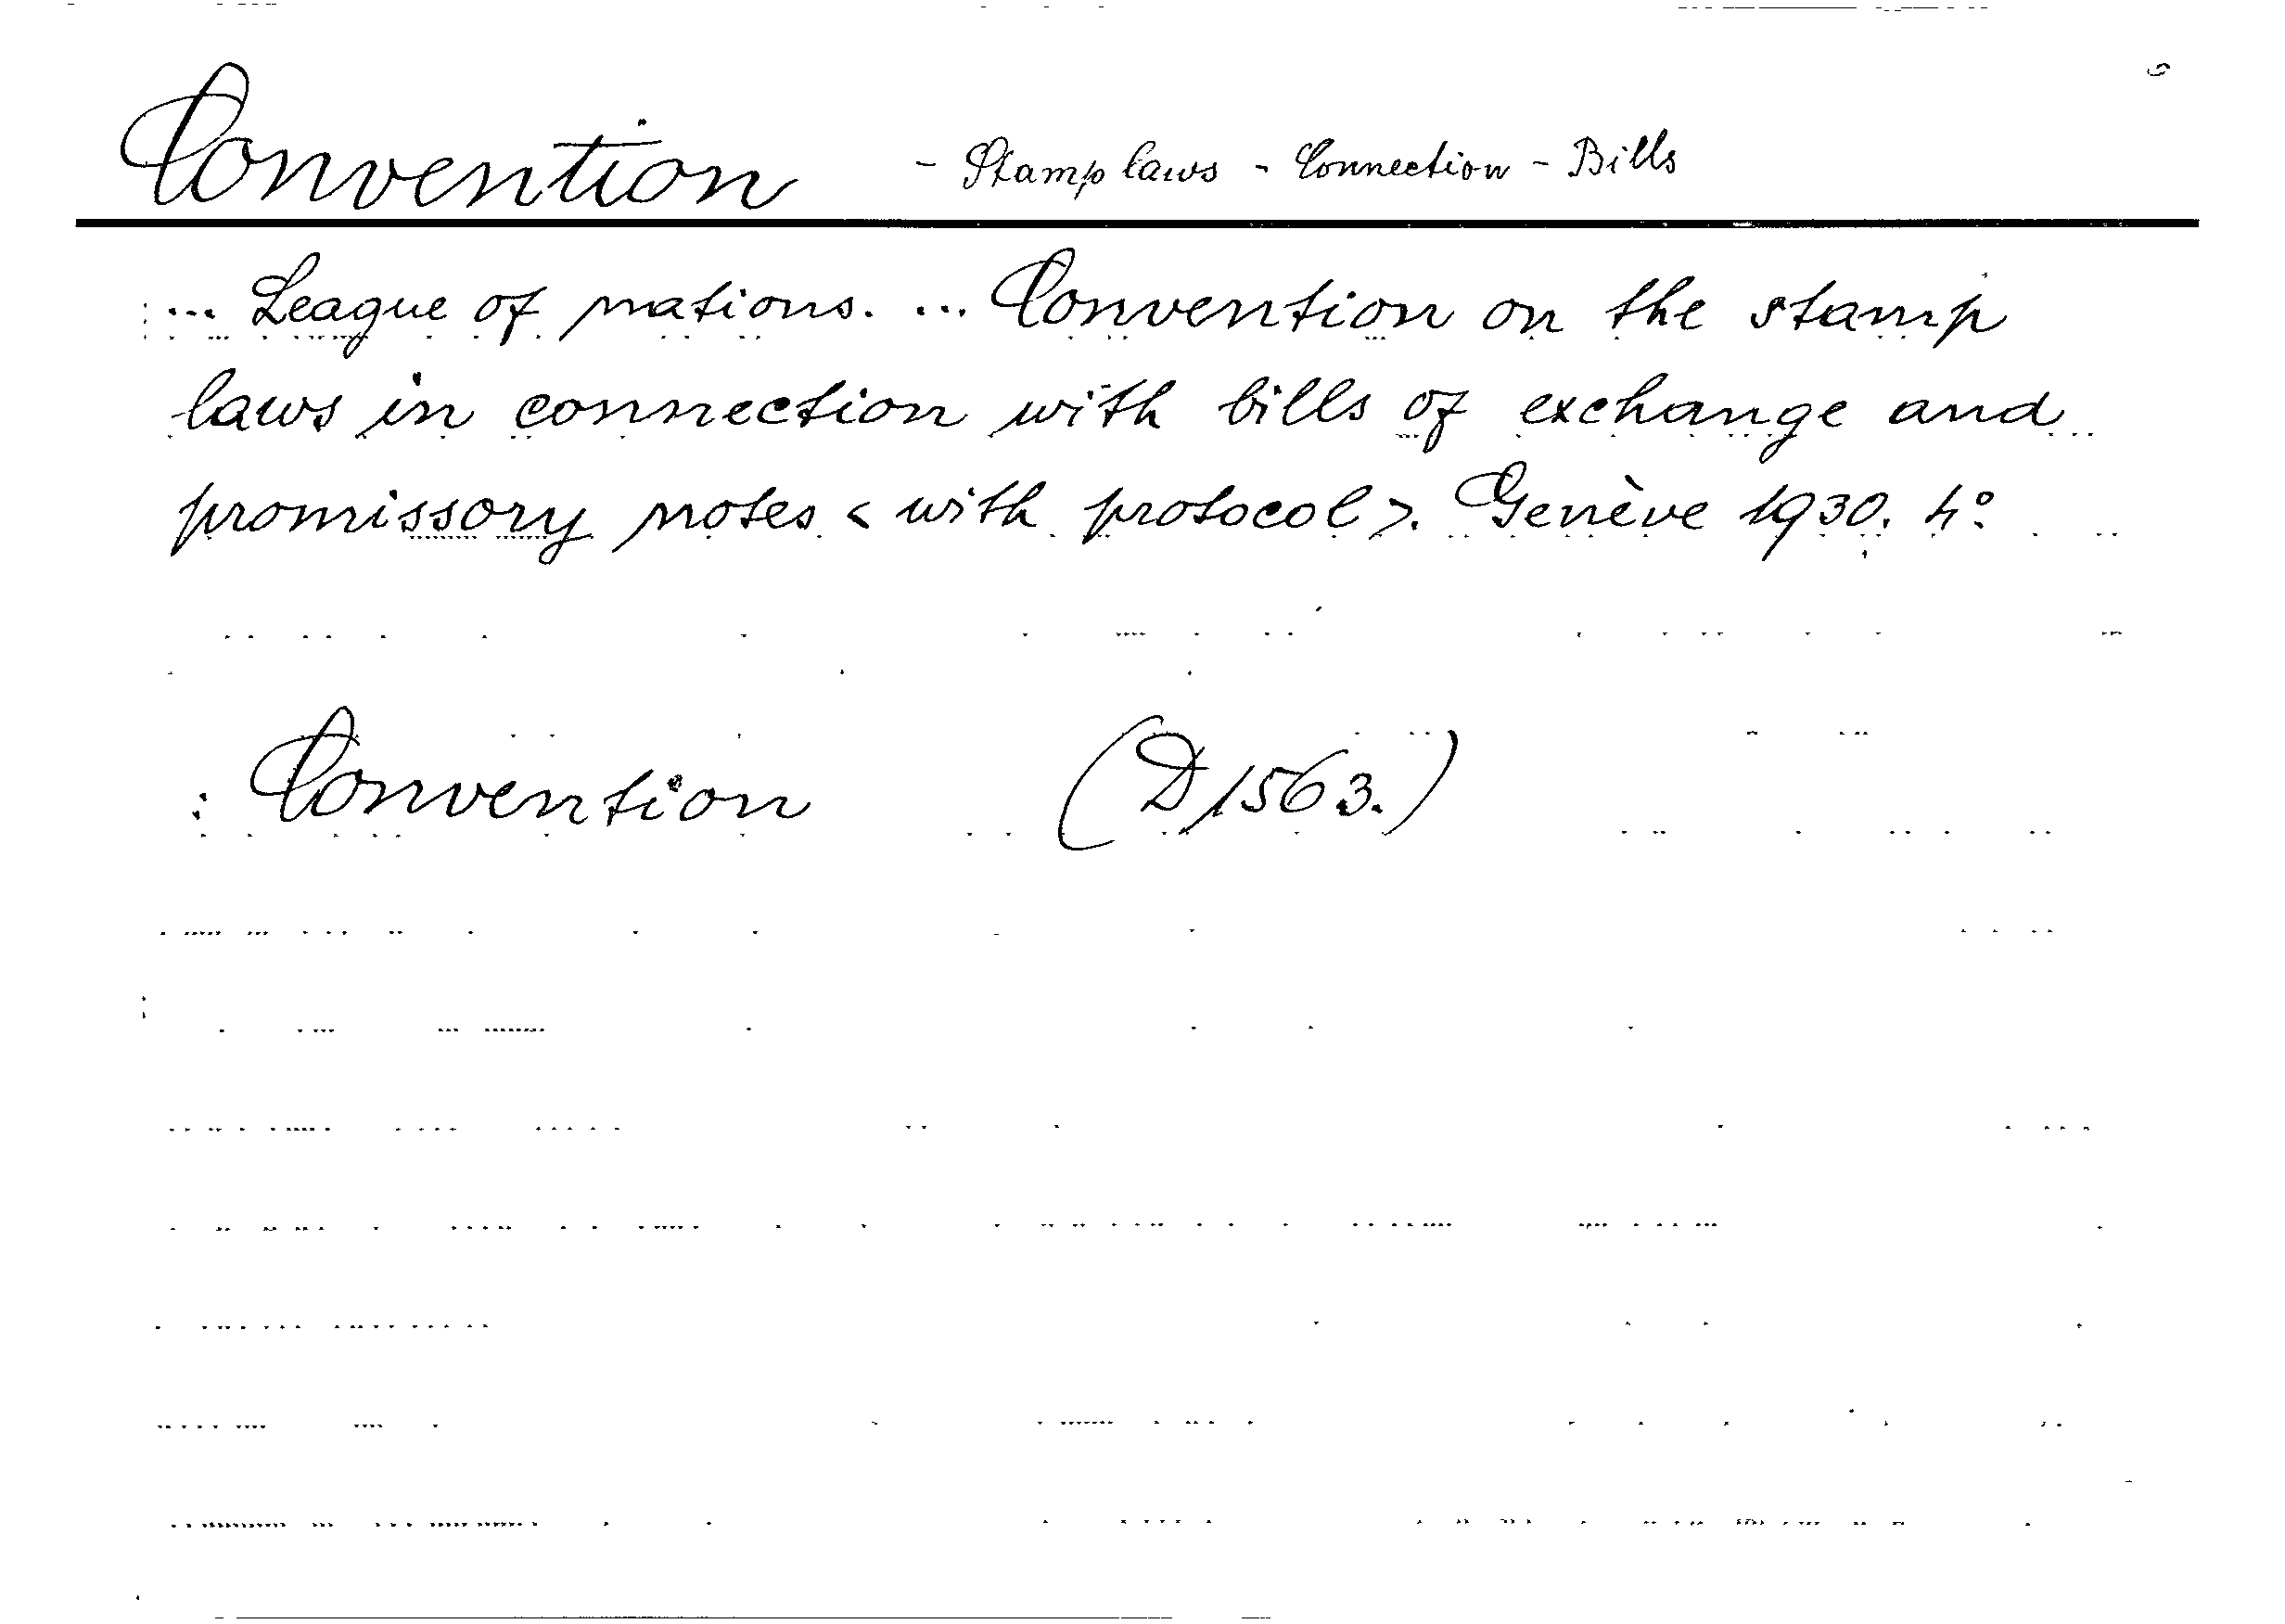 Convention - Stamp laws - Connection - Bills
... League of nations. ... Convention on the stamp
laws in connection with bills of exchange and
promissory notes < with protocol >. Genève 1930. 4°
: Convention (D 1563.)